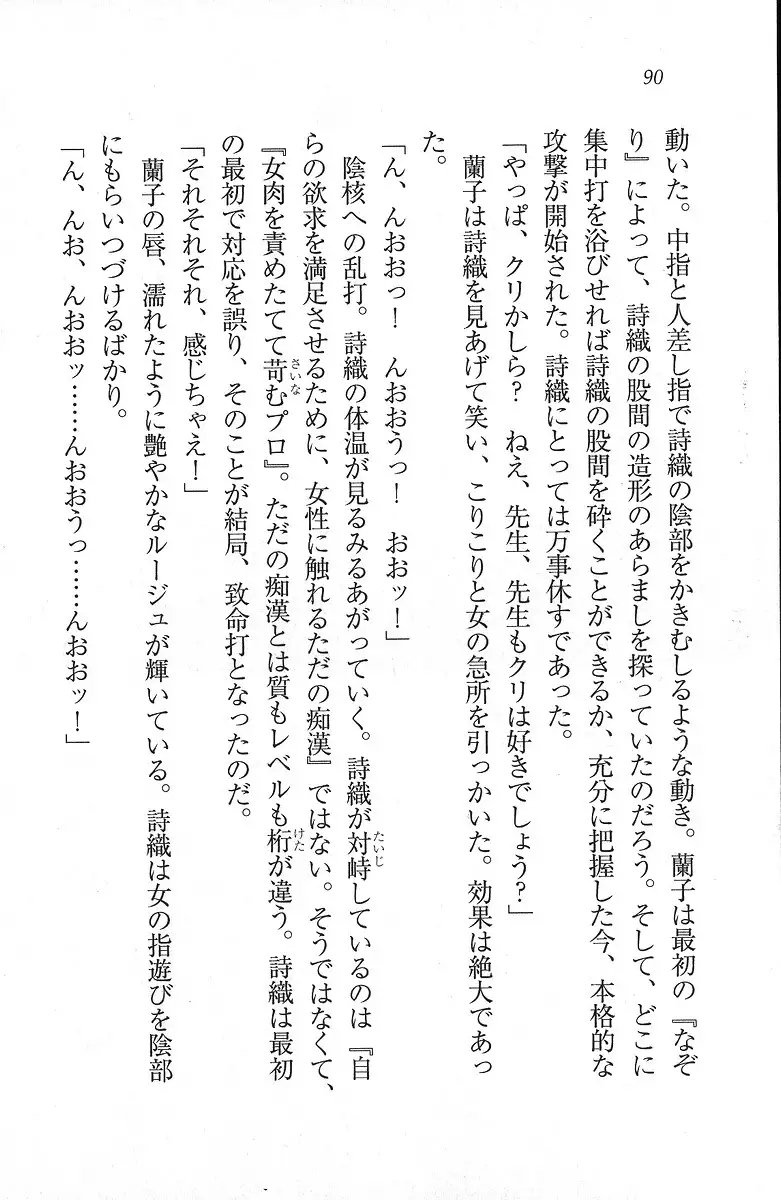 90
動いた。中指と人差し指で詩織の陰部をかきむしるような動き。蘭子は最初の『なぞ
り』によって、詩織の股間の造形のあらましを探っていたのだろう。そして、どこに
集中打を浴びせれば詩織の股間を砕くことができるか、充分に把握した今、本格的な
攻撃が開始された。詩織にとっては万事休すであった。
「やっぱ、クリかしら？　ねえ、先生、先生もクリは好きでしょう？」
　蘭子は詩織を見あげて笑い、こりこりと女の急所を引っかいた。効果は絶大であっ
た。
「ん、んおおっ！　んおおうっ！　おおッ！」
　陰核への乱打。詩織の体温が見るみるあがっていく。詩織が対峙（たいじ）しているのは『自
らの欲求を満足させるために、女性に触れるただの痴漢』ではない。そうではなくて、
『女肉を責めたてて苛（さいな）むプロ』。ただの痴漢とは質もレベルも桁（けた）が違う。詩織は最初
の最初で対応を誤り、そのことが結局、致命打となったのだ。
「それそれそれ、感じちゃえ！」
　蘭子の唇、濡れたように艶やかなルージュが輝いている。詩織は女の指遊びを陰部
にもらいつづけるばかり。
「ん、んお、んおおッ……んおおうっ……んおおッ！」